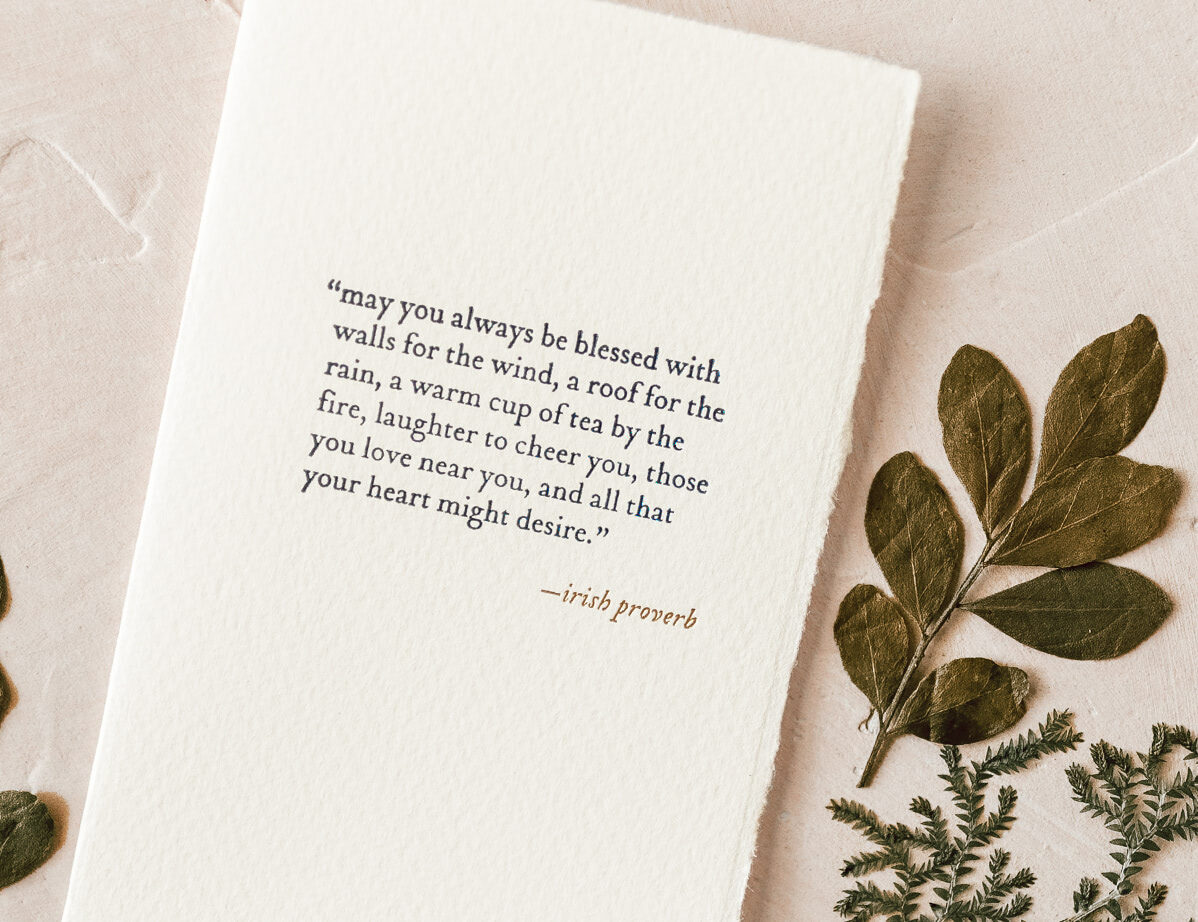 “may you always be blessed with
walls for the wind, a roof for the
rain, a warm cup of tea by the
fire, laughter to cheer you, those
you love near you, and all that
your heart might desire.”
—irish proverb